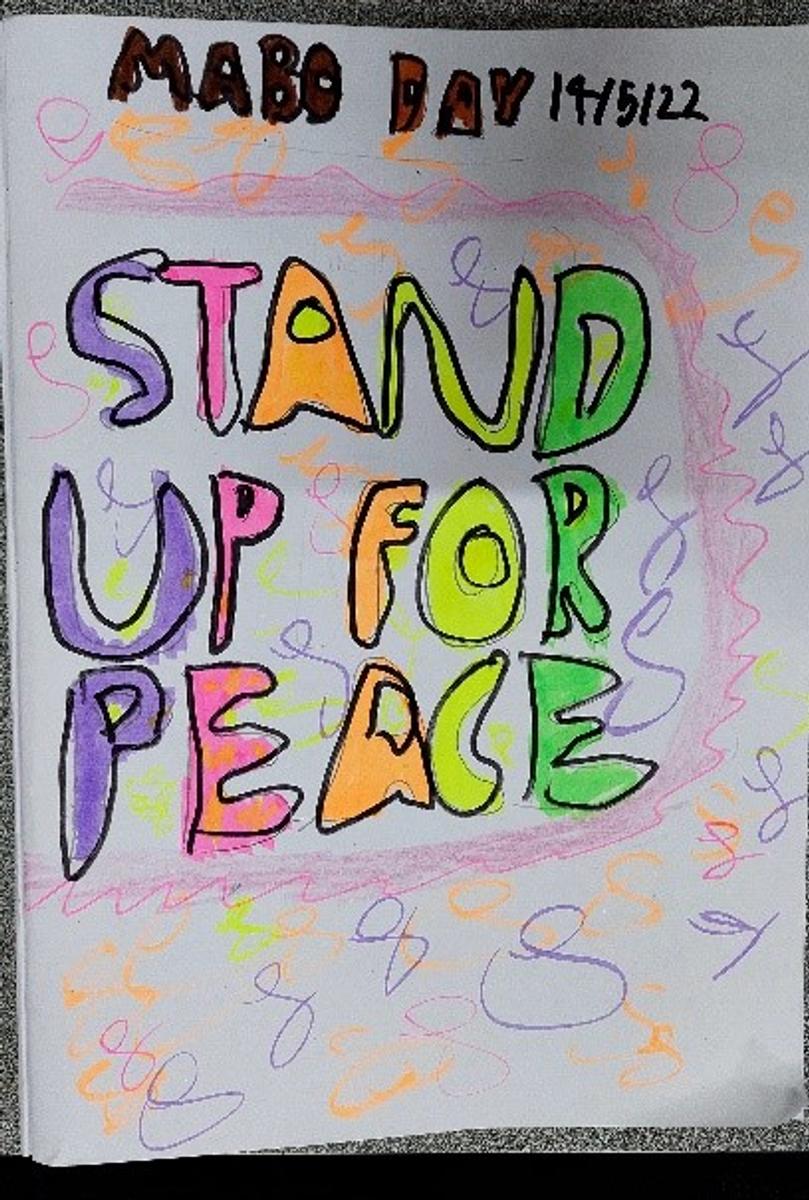 MABO DAY 14/5/22
STAND
UP FOR
PEACE